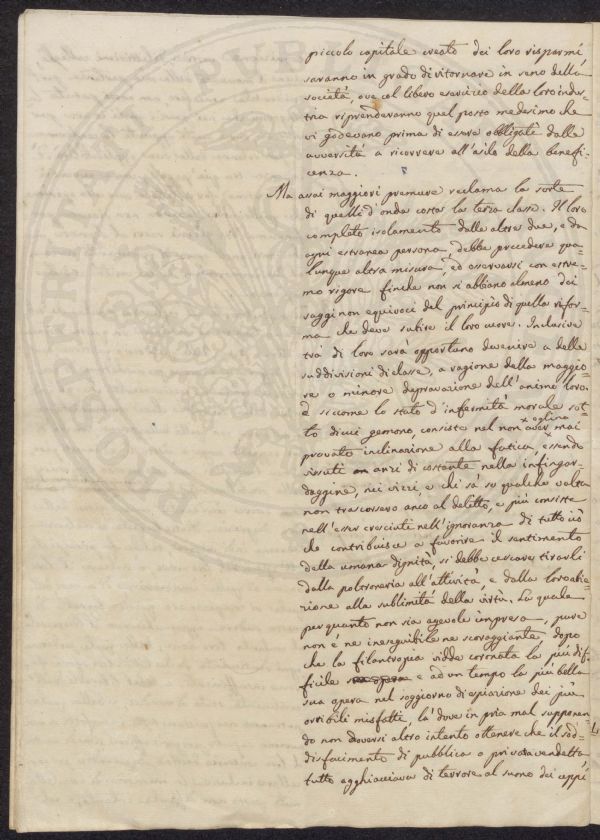 piccolo capitale creato dei loro risparmi
saranno in grado di ritornare in seno della
società, ove col libero esercizio della loro indus-
tria riprenderanno quel posto medesimo che
vi godevano prima di essere obbligati dalla
avversità a ricorrere all'asilo della benefi-
cenza.
Ma assai maggiori premure reclama la sorte
di quelli d'onde costa la terza classe. Il loro
completo isolamento dalle altre due, e da
ogni estranea persona, debbe precedere qua-
lunque altra misura, ed osservarsi con estre-
mo rigore finchè non si abbiano almeno dei
saggi non equivoci del principio di quella rifor-
ma che deve subire il loro cuore. Inclusive
trà di loro sarà opportuno devenire a delle
suddivisioni di classe, a ragione della maggio-
re o minore depravazione dell'animo loro.
E siccome lo stato d'infermità morale sot-
to di cui gemono, consiste nel non aver mai
provato inclinazione alla fatica, essendo
vissuti anzi di costante nella infingar-
daggine, nei vizzi, e chi sà se qualche volta
non trascorsero anco al delitto, e più consiste
nell'esser cresciuti nell'ignoranza di tutto ciò
che contribuisce a favorire il sentimento
della umana dignità, si debbe cercare tirarli
dalla poltroneria all'attività, e dalla loro abie-
zione alla sublimità della virtù. La quale
per quanto non sia agevole impresa, pure
non è ne ineseguibile ne scoraggiante, dopo
che la filantropia vidde coronata la più dif-
ficile e ad un tempo la più bella
sua opera nel soggiorno di espiazione dei più
orribili misfatti, là dove in pria mal supponen-
do non doversi altro intento ottenere che il sod-
disfacimento di pubblica o privata vendetta
tutto agghiacciava di terrore al suono dei ceppi